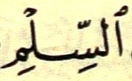 ٱلسَّلِيْمِ